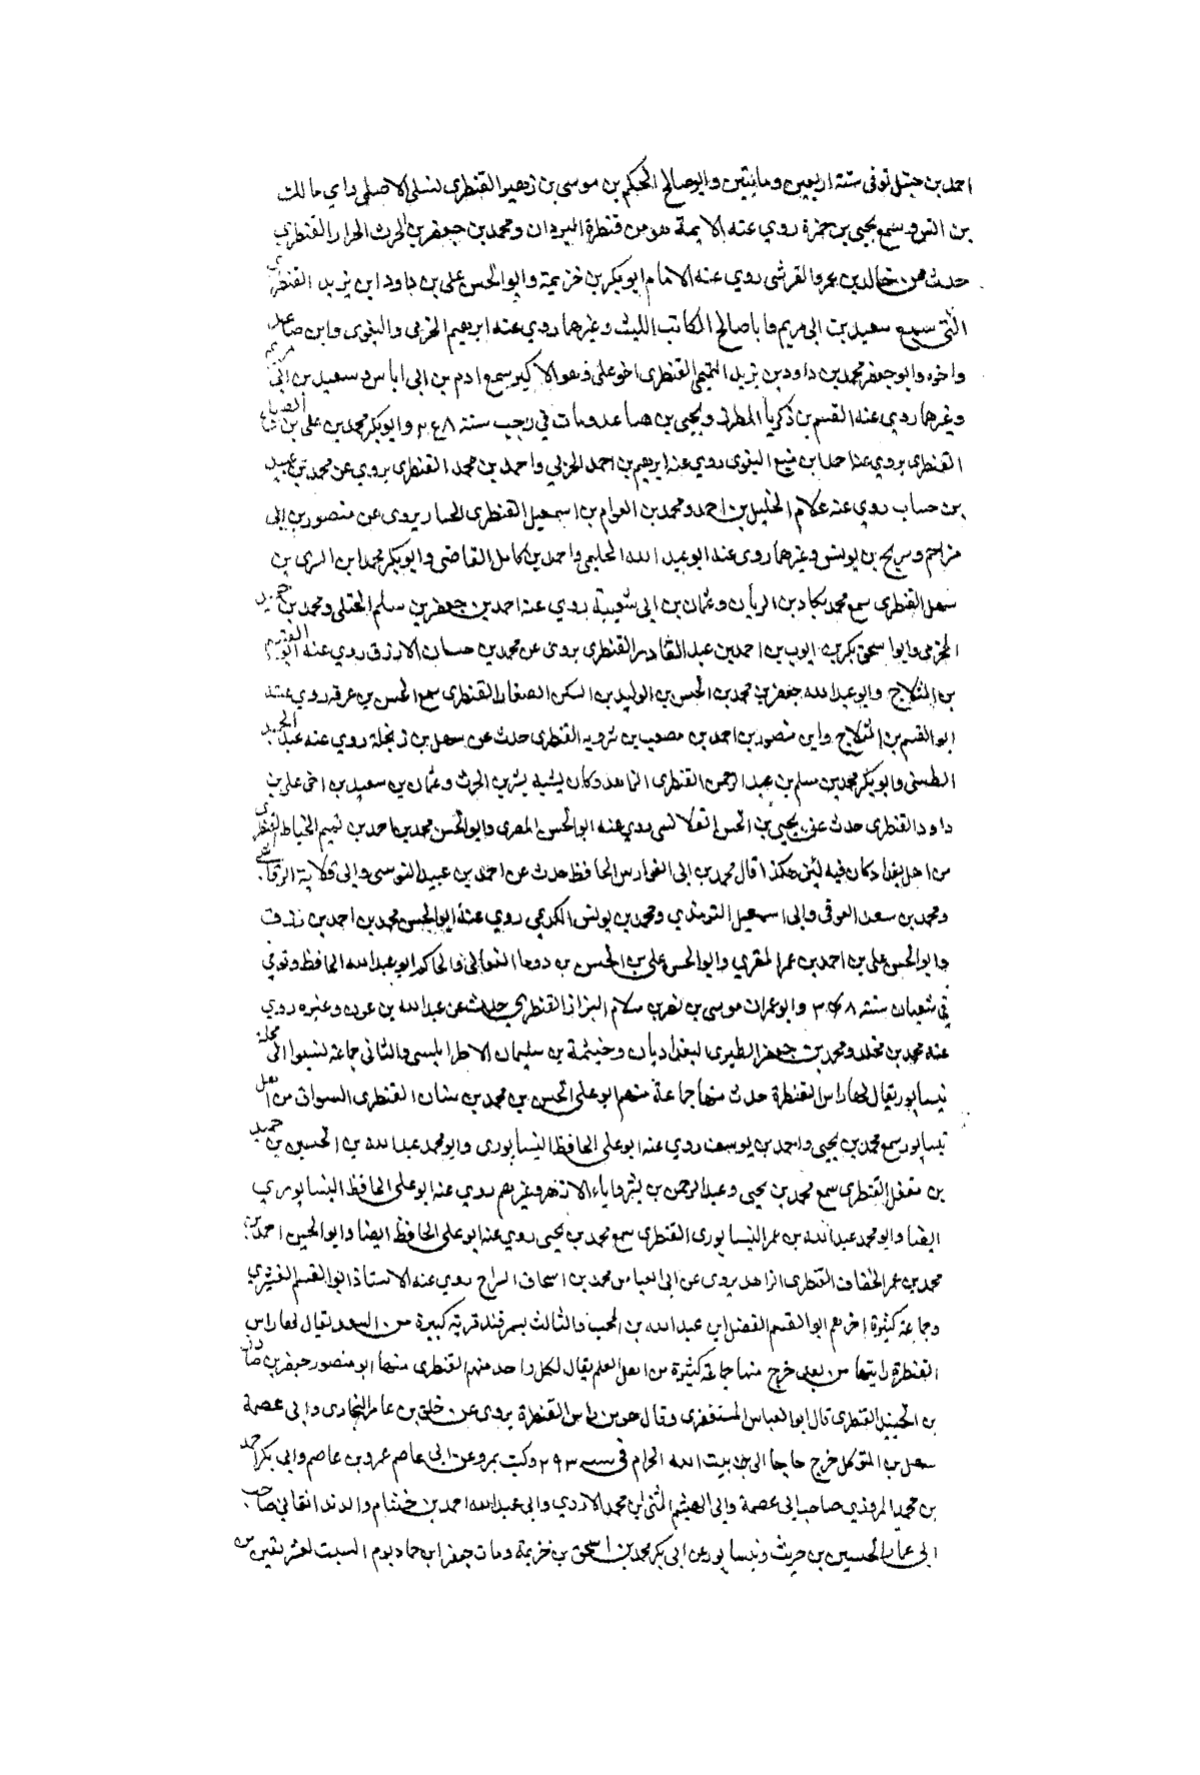 احمد بن حنبل توفى سنة اربعين ومائتين وابو صالح الحكم بن موسى بن زهير القنطرى نسلى الاصل راي مالك
بن انس وسمع يحيى بن حمزة روي عنه الايمة هو من قنطرة البردان ومحمد بن جعفر بن الحرث الحرار القنطري
حدث عن خالد بن عمرو القرشى روي عنه الامام ابو بكر بن خزيمة وابو الحسن على بن داود ابن يزيد القنطرى
سمع سعيد بن ابى مريم وابا صالح الكاتب الليث وغيرهما روي عنه ابرهيم الحربى والبغوى وابن صاعد
واخوه وابو جعفر محمد بن داود بن يزيد التميمى القنطرى اخو على وهو الاكبر سمع ادم بن ابى اياس وسعيد بن ابى مريم
وغيرهما روي عنه القسم بن زكريا المطرز ويحيى بن صاعد ومات في رجب سنة وابو بكر محمد بن على بن
القنطرى يروي عن احمد ابن منيع البغوى روي عنه ابرهيم بن احمد الحربى واحمد بن محمد القنطرى يروي عن محمد بن عبيد
بن حساب روي عنه غلام الخليل بن احمد ومحمد بن العوام بن اسمعيل القنطرى يروى عن منصور بن ابى
مزاحم وسريج بن يونس وغيرهما روى عنه ابو عبد الله الحليمى واحمد بن كامل القاضى وابو بكر محمد ابن السرى بن
سهل القنطرى سمع محمد بكار بن الريان وعثمان بن ابى شيبة روي عنه احمد بن جعفر بن سلم الختلى ومحمد بن حميد
المخرمى وابوا سحق بكر بن ايوب بن احمد بن عبد القادر القنطرى يروى عن محمد بن حسان الازرق روي عنه ابو القسم
بن الثلاج وابو عبد الله جعفر بن محمد بن الحسن بن الوليد بن السكن الصفار القنطرى سمع الحسن بن عرفه روي عنه
ابو القسم بن الثلاج وابن منصور بن احمد بن مصعب بن القنطرى حدث عن سهل بن زنجلة روي عنه عبد
الطستى وابو بكر محمد بن مسلم بن عبد الرحمن القنطرى الزاهد وكان يشبه بشر بن الحرث وعثمان بن سعيد بن اخى على بن
داود القنطرى حدث عن يحيى بن الحسن روي عنه ابو الحسن المصرى وابو الحسن محمد بن احمد بن تميم الخياط القنطرى
من اهل بغداد كان فيه لين هكذا قال محمد بن ابى الفوارس الحافظ حدث عن احمد بن عبيد النرسى وابى قلابة الرقاشى
ومحمد بن سعد العوفى وابى اسمعيل الترمذي ومحمد بن يونس الكديمى روي عنه ابو الحسن محمد بن احمد بن رزق
وابو الحسن على بن احمد بن عمر المقري وابو الحسن على بن الحسن بن دوما النعالى والحاكم ابو عبد الله الحافظ وتوفى
في شعبان سنة وابو عمران موسى بن نصر بن سلام البزاز القنطرى حدث عن عبد الله بن عون وغيره روي
عنه محمد بن مخلد ومحمد بن جعفر المطيرى البغداديان وخيثمة بن سليمان الاطرابلسى والثانى جماعة نسبوا الى محلة
نيسابور يقال لها راس القنطرة حدث منها جماعة منهم ابو على الحسن بن محمد بن سنان القنطرى السواق من اهل
نيسابور سمع محمد بن يحيى واحمد بن يوسف روي عنه ابو على الحافظ النيسابورى وابو محمد عبد الله بن الحسين بن حميد
بن معقل القنطرى سمع محمد بن يحيى وعبد الرحمن بن بشر وابا الازهر وغيرهم روي عنه ابو على الحافظ النيسابوري
ايضا وابو محمد عبد الله بن عمر النيسابورى القنطرى سمع محمد بن يحيى روي عنه ابو على الحافظ ايضا وابو الحسين احمد بن
محمد بن عمر الخفاف القنطرى الزاهد يروى عن ابى العباس محمد بن اسحاق السراج روي عنه الاستاذ ابو القسم القشيري
وجماعة كثيرة اخرهم ابو القسم الفضل ابن عبد الله بن المحب والثالث بسمرقند قرية كبيرة من السعد يقال لها راس
القنطرة رايتها من بعد خرج منها جماعة كثيرة من اهل العلم يقال لكل واحد منهم القنطرى منها ابو منصور جعفر بن صادق
بن الجنيد القنطرى قال ابو العباس المستغفرى وقال هو من راس القنطرة يروى عن خلف بن عامر البخارى وابى عصمة
سهل بن المتوكل خرج حاجا الى بيت الله الحرام فى سنة ٢٩٣ وكتب بمرو عن ابى عاصم عمرو بن عاصم وابى بكر احمد
بن محمد المروذي صاحب ابى عصمة وابى الهيثم المثنى ابن محمد الازدى وابى عبد الله احمد بن خشنام والدندانقانى صاحب
ابى عمار الحسين بن حريث ونيسابور عن ابى بكر محمد بن اسحق بن خزيمة ومات جعفر ابن حماد يوم السبت لعشر بقين من